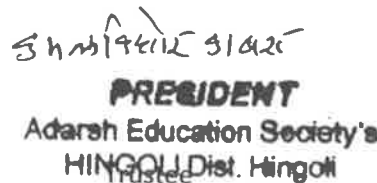 PRESIDENT
Adarsh Education Society's
HINGOLI Dist. Hingoli
Trustee